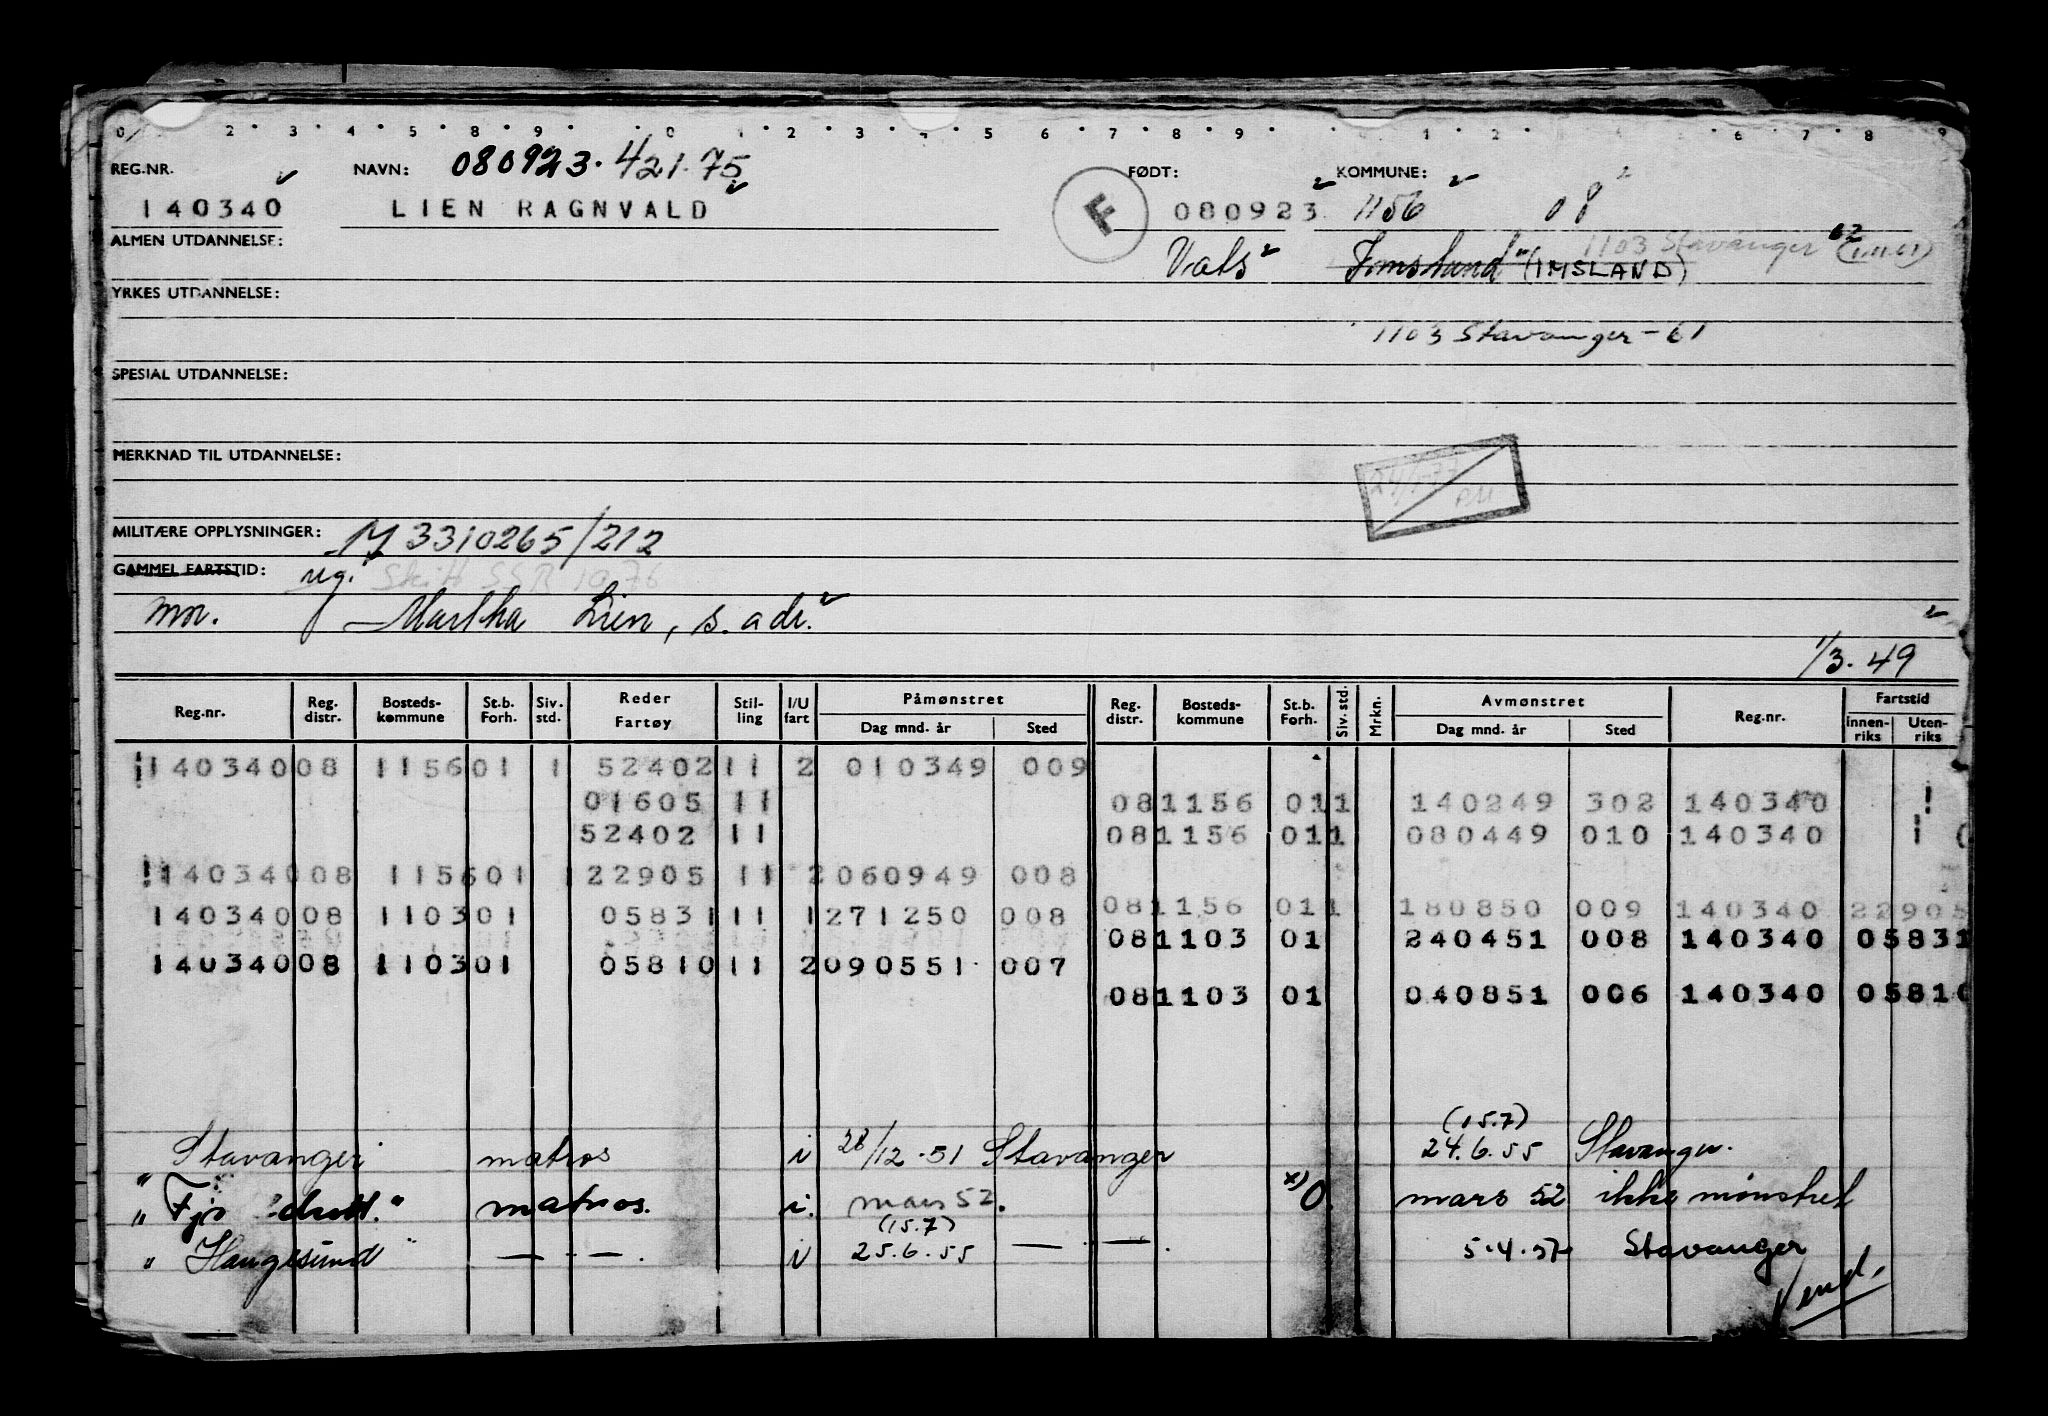 REG.NR. NAVN: 080923. 421.75 FØDT: KOMMUNE:
140340 LIEN RAGNVALD F 080923 1156 08
ALMEN UTDANNELSE: Vats 1103 Stavanger 62 (1.11.61)
Imsland" (IMSLAND)
YRKES UTDANNELSE:
1103 Stavanger - 61
SPESIAL UTDANNELSE:
MERKNAD TIL UTDANNELSE:
MILITÆRE OPPLYSNINGER: M 3310265/212
GAMMEL FARTSTID: reg. Skitt SSR 1976
mor. Martha Lien, s. adr.
1/3. 49
Reg.nr. Reg. distr. Bosteds-kommune St.b. Forh. Siv. std. Reder Fartøy Stil-ling I/U fart Påmønstret Dag mnd. år Sted Reg. distr. Bosteds-kommune St.b. Forh. Siv. std. Mrkn. Avmønstret Dag mnd. år Sted Reg.nr. Fartstid Innen-riks Uten-riks
140340 08 1156 01 1 52402 11 2 010349 009
01605 11 08 1156 01 1 140249 302 140340
52402 11 08 1156 01 1 080449 010 140340
140340 08 1156 01 1 22905 11 2 060949 008
08 1156 01 1 180850 009 140340 22905
140340 08 1103 01 05831 11 1 271250 008
08 1103 01 240451 008 140340 05831
140340 08 1103 01 05810 11 2 090551 007
08 1103 01 040851 006 140340 05810
(15.7)
" Stavanger matros i 28/12.51 Stavanger 24.6.55 Stavanger.
" matros. i. mars 52. x) 0 mars 52 ikke mønstret
(15.7)
" Haugesund " — — . i 25.6.55 — — . 5.4.57 Stavanger
Vend.